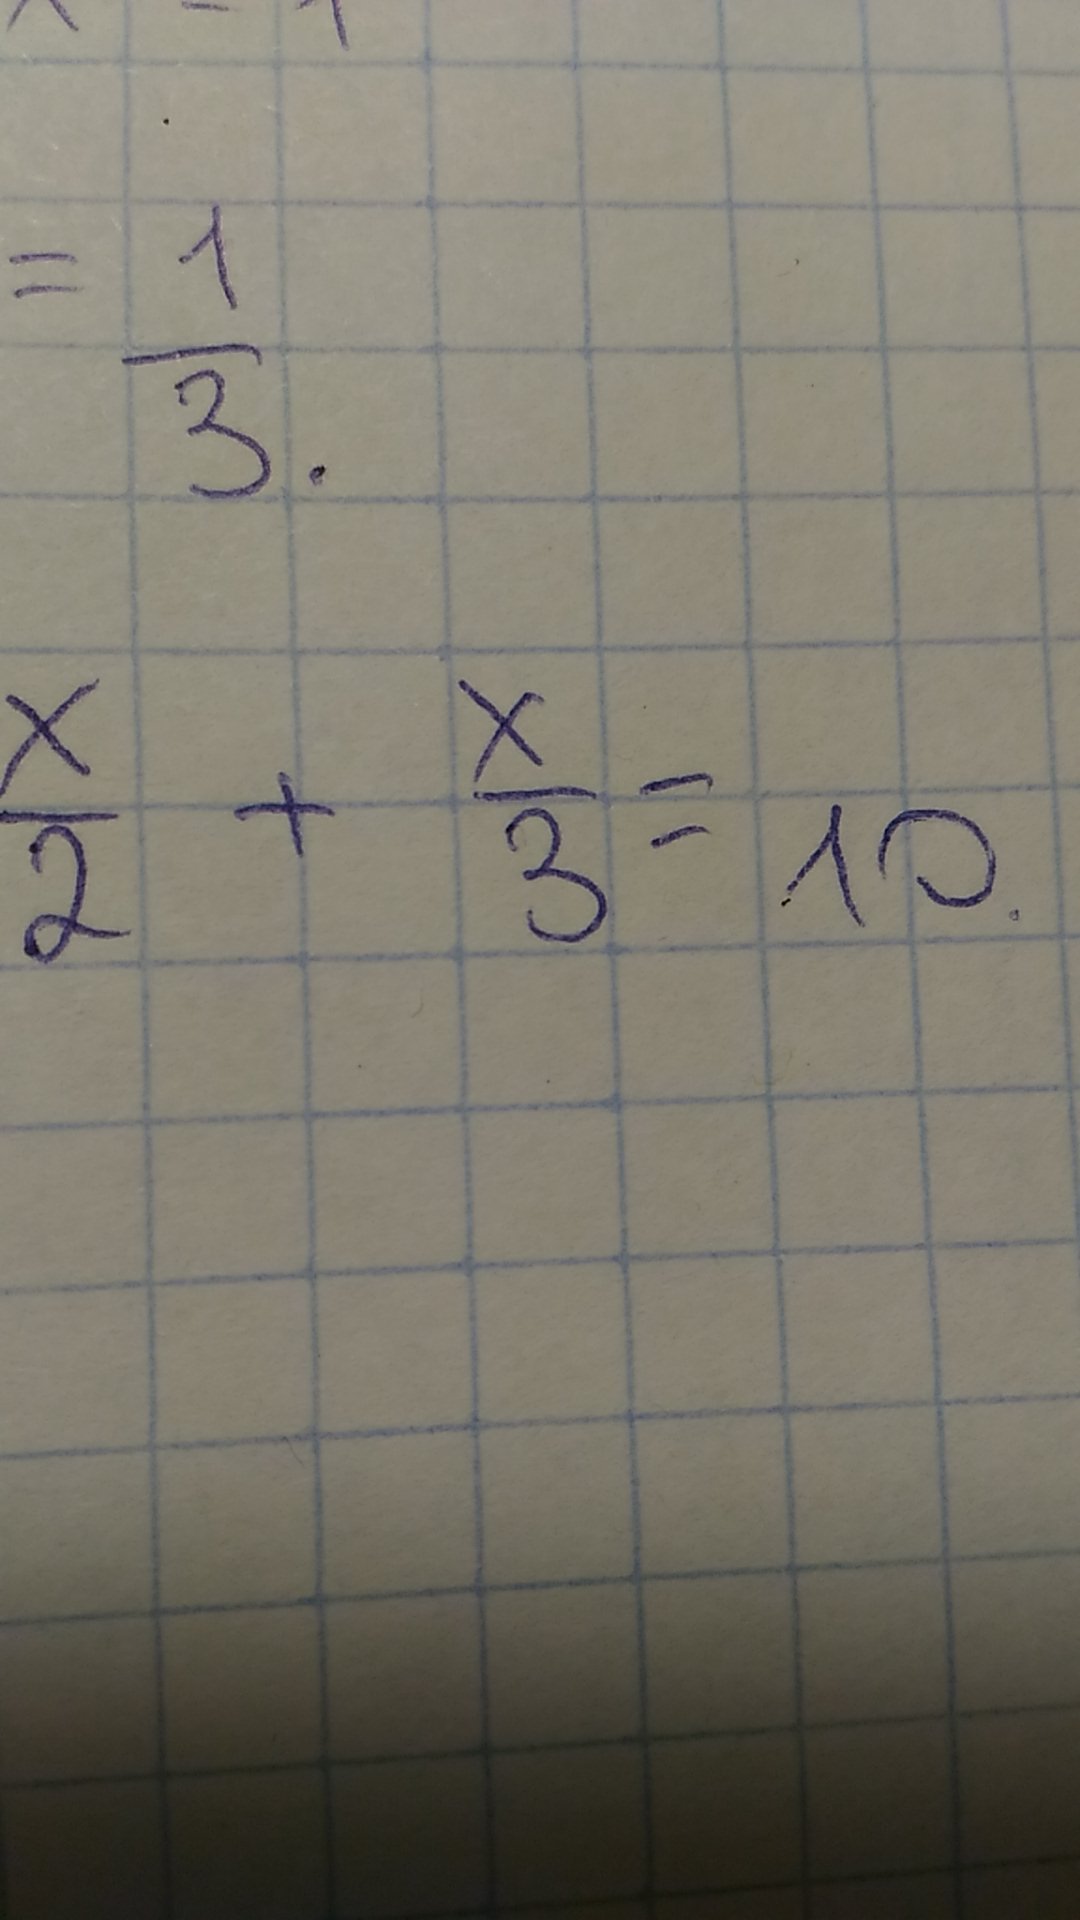 = 1/3.
x/2 + x/3 = 10.